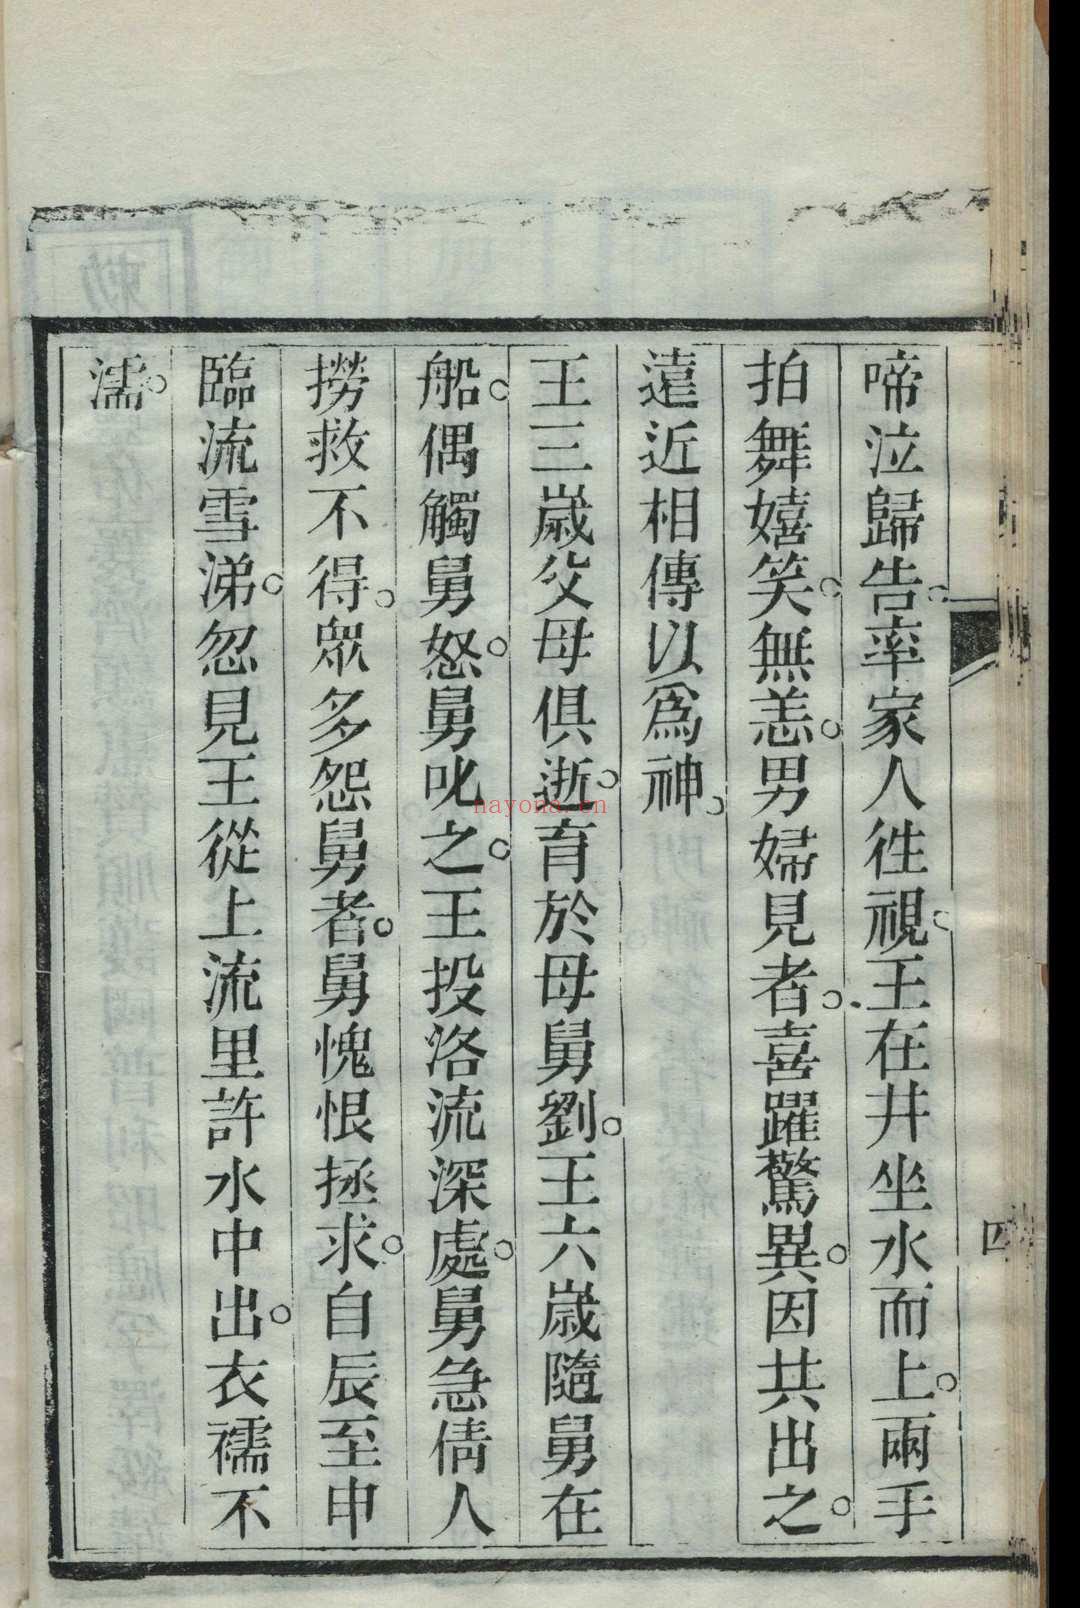 啼泣歸告。率家人徃視。王在井坐水而上。兩手
拍舞嬉笑。無恙。男婦見者。喜躍驚異。因共出之。
遠近相傳以爲神。
王三歲父母俱逝。育於母舅劉。王六歲隨舅在
船。偶觸舅怒。舅叱之。王投洛流深處。舅急倩人
撈救不得。眾多怨舅者。舅愧恨拯求。自辰至申
臨流雪涕。忽見王從上流里許水中出。衣襦不
濡。
四
nayona.cn